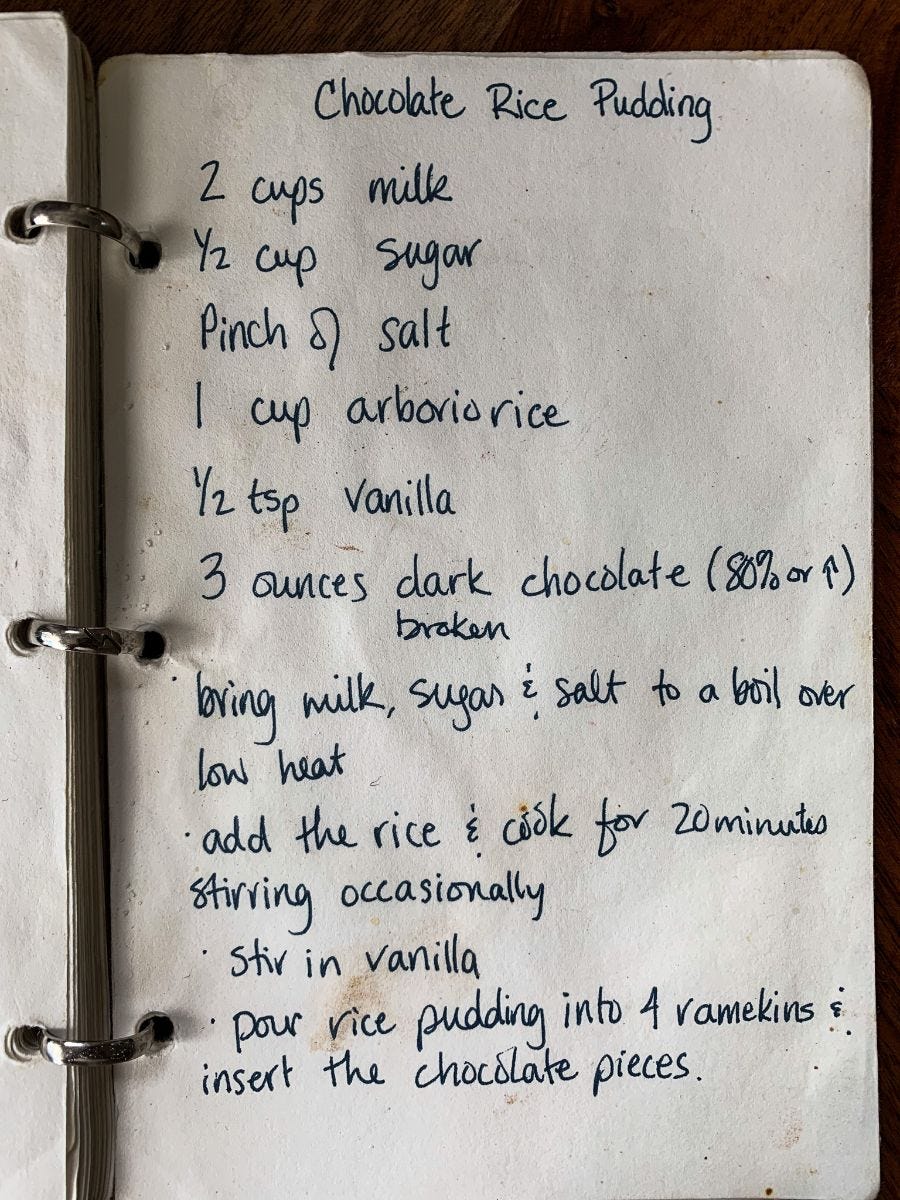 Chocolate Rice Pudding
2 cups milk
1/2 cup sugar
Pinch of salt
1 cup arborio rice
1/2 tsp vanilla
3 ounces dark chocolate (80% or ↑)
broken
· bring milk, sugar & salt to a boil over
low heat
· add the rice & cook for 20 minutes
stirring occasionally
· stir in vanilla
· pour rice pudding into 4 ramekins &
insert the chocolate pieces.